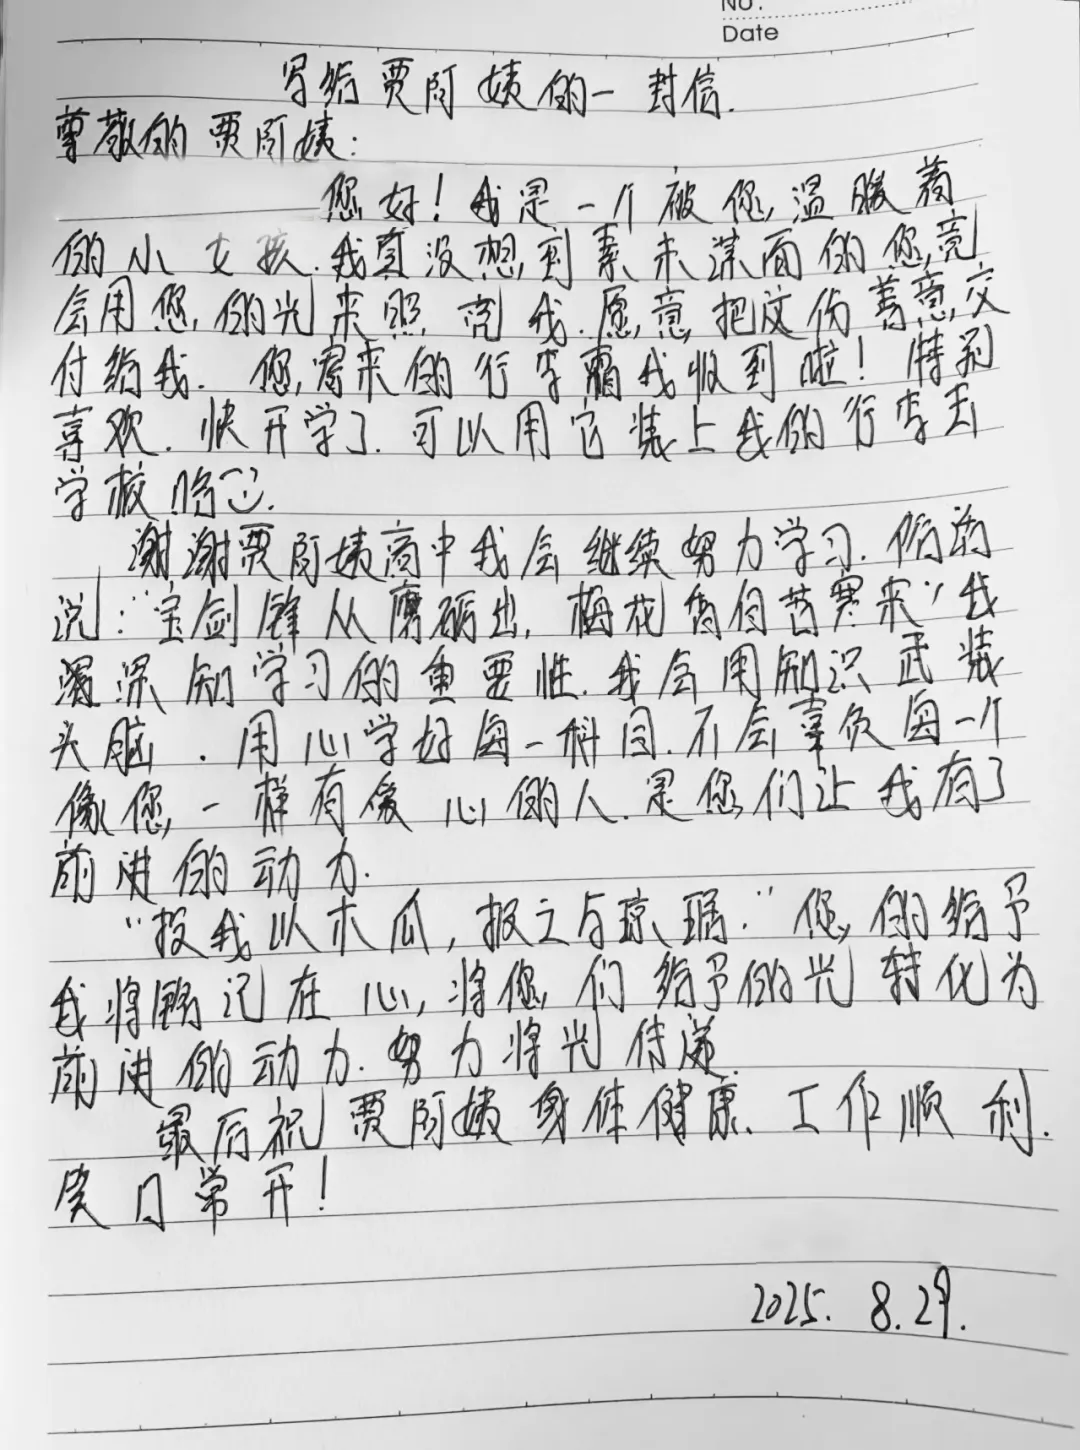 No.
Date
写给贾阿姨的一封信.
尊敬的贾阿姨:
您好!我是一个被您温暖着
的小女孩.我真没想到素未谋面的您,竟
会用您的光来照亮我.愿意把这份善意交
付给我.您寄来的行李箱我收到啦!特别
喜欢.快开学了.可以用它装上我的行李去
学校哈.
谢谢贾阿姨高中我会继续努力学习.俗话
说:"宝剑锋从磨砺出,梅花香自苦寒来"我
深深知学习的重要性.我会用知识武装
头脑.用心学好每一科目.不会辜负每一个
像您一样有爱心的人.是您们让我有了
前进的动力.
"投我以木瓜,报之与琼琚."您的给予
我将铭记在心,将您们给予的光转化为
前进的动力.努力将光传递.
最后祝贾阿姨身体健康、工作顺利.
笑口常开!
2025.8.29.